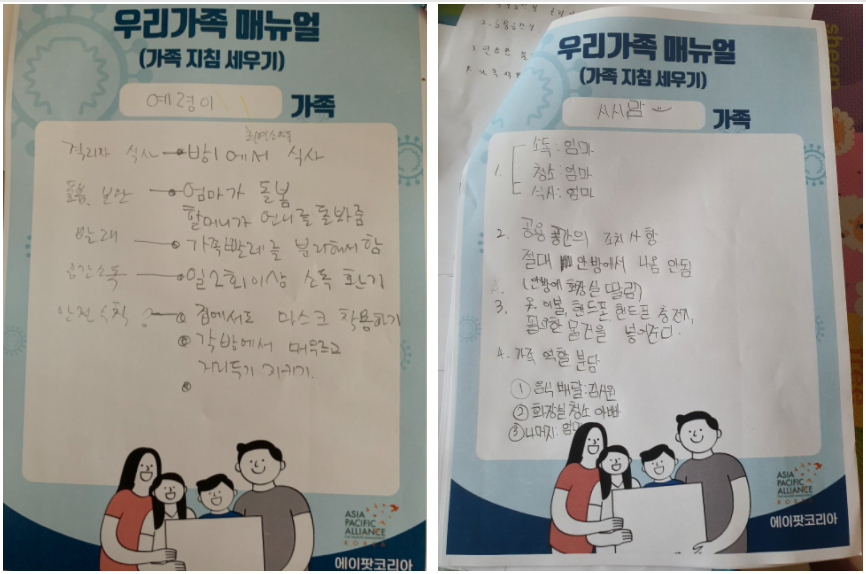 우리가족 매뉴얼
(가족 지침 세우기)
예령이 가족
격리자 식사 방1에서 식사
돌봄, 보안 엄마가 돌봄
할머니가 언니를 돌봐줌
빨래 가족빨레를 분리해서 함
공간소독 일2회이상 소독 환기
안전수칙 ① 집에서도 마스크 착용하기
② 각방에서 머무르고
거리두기 지키기.
③
ASIA
PACIFIC
ALLIANCE
KOREA
에이팟코리아
우리가족 매뉴얼
(가족 지침 세우기)
가족
1. 소독: 엄마
청소: 엄마
식사: 엄마
2. 공용 공간의 조치사항
절대 안방에서 나옴 안됨
(안방에 화장실 딸림)
3. 옷, 이불, 핸드폰, 핸드폰 충전기,
필요한 물건을 넣어준다.
4. 가족 역할 분담
① 음식 배달:
② 화장실 청소 아빠
③ 나머지: 엄마
ASIA
PACIFIC
ALLIANCE
KOREA
에이팟코리아
sheen